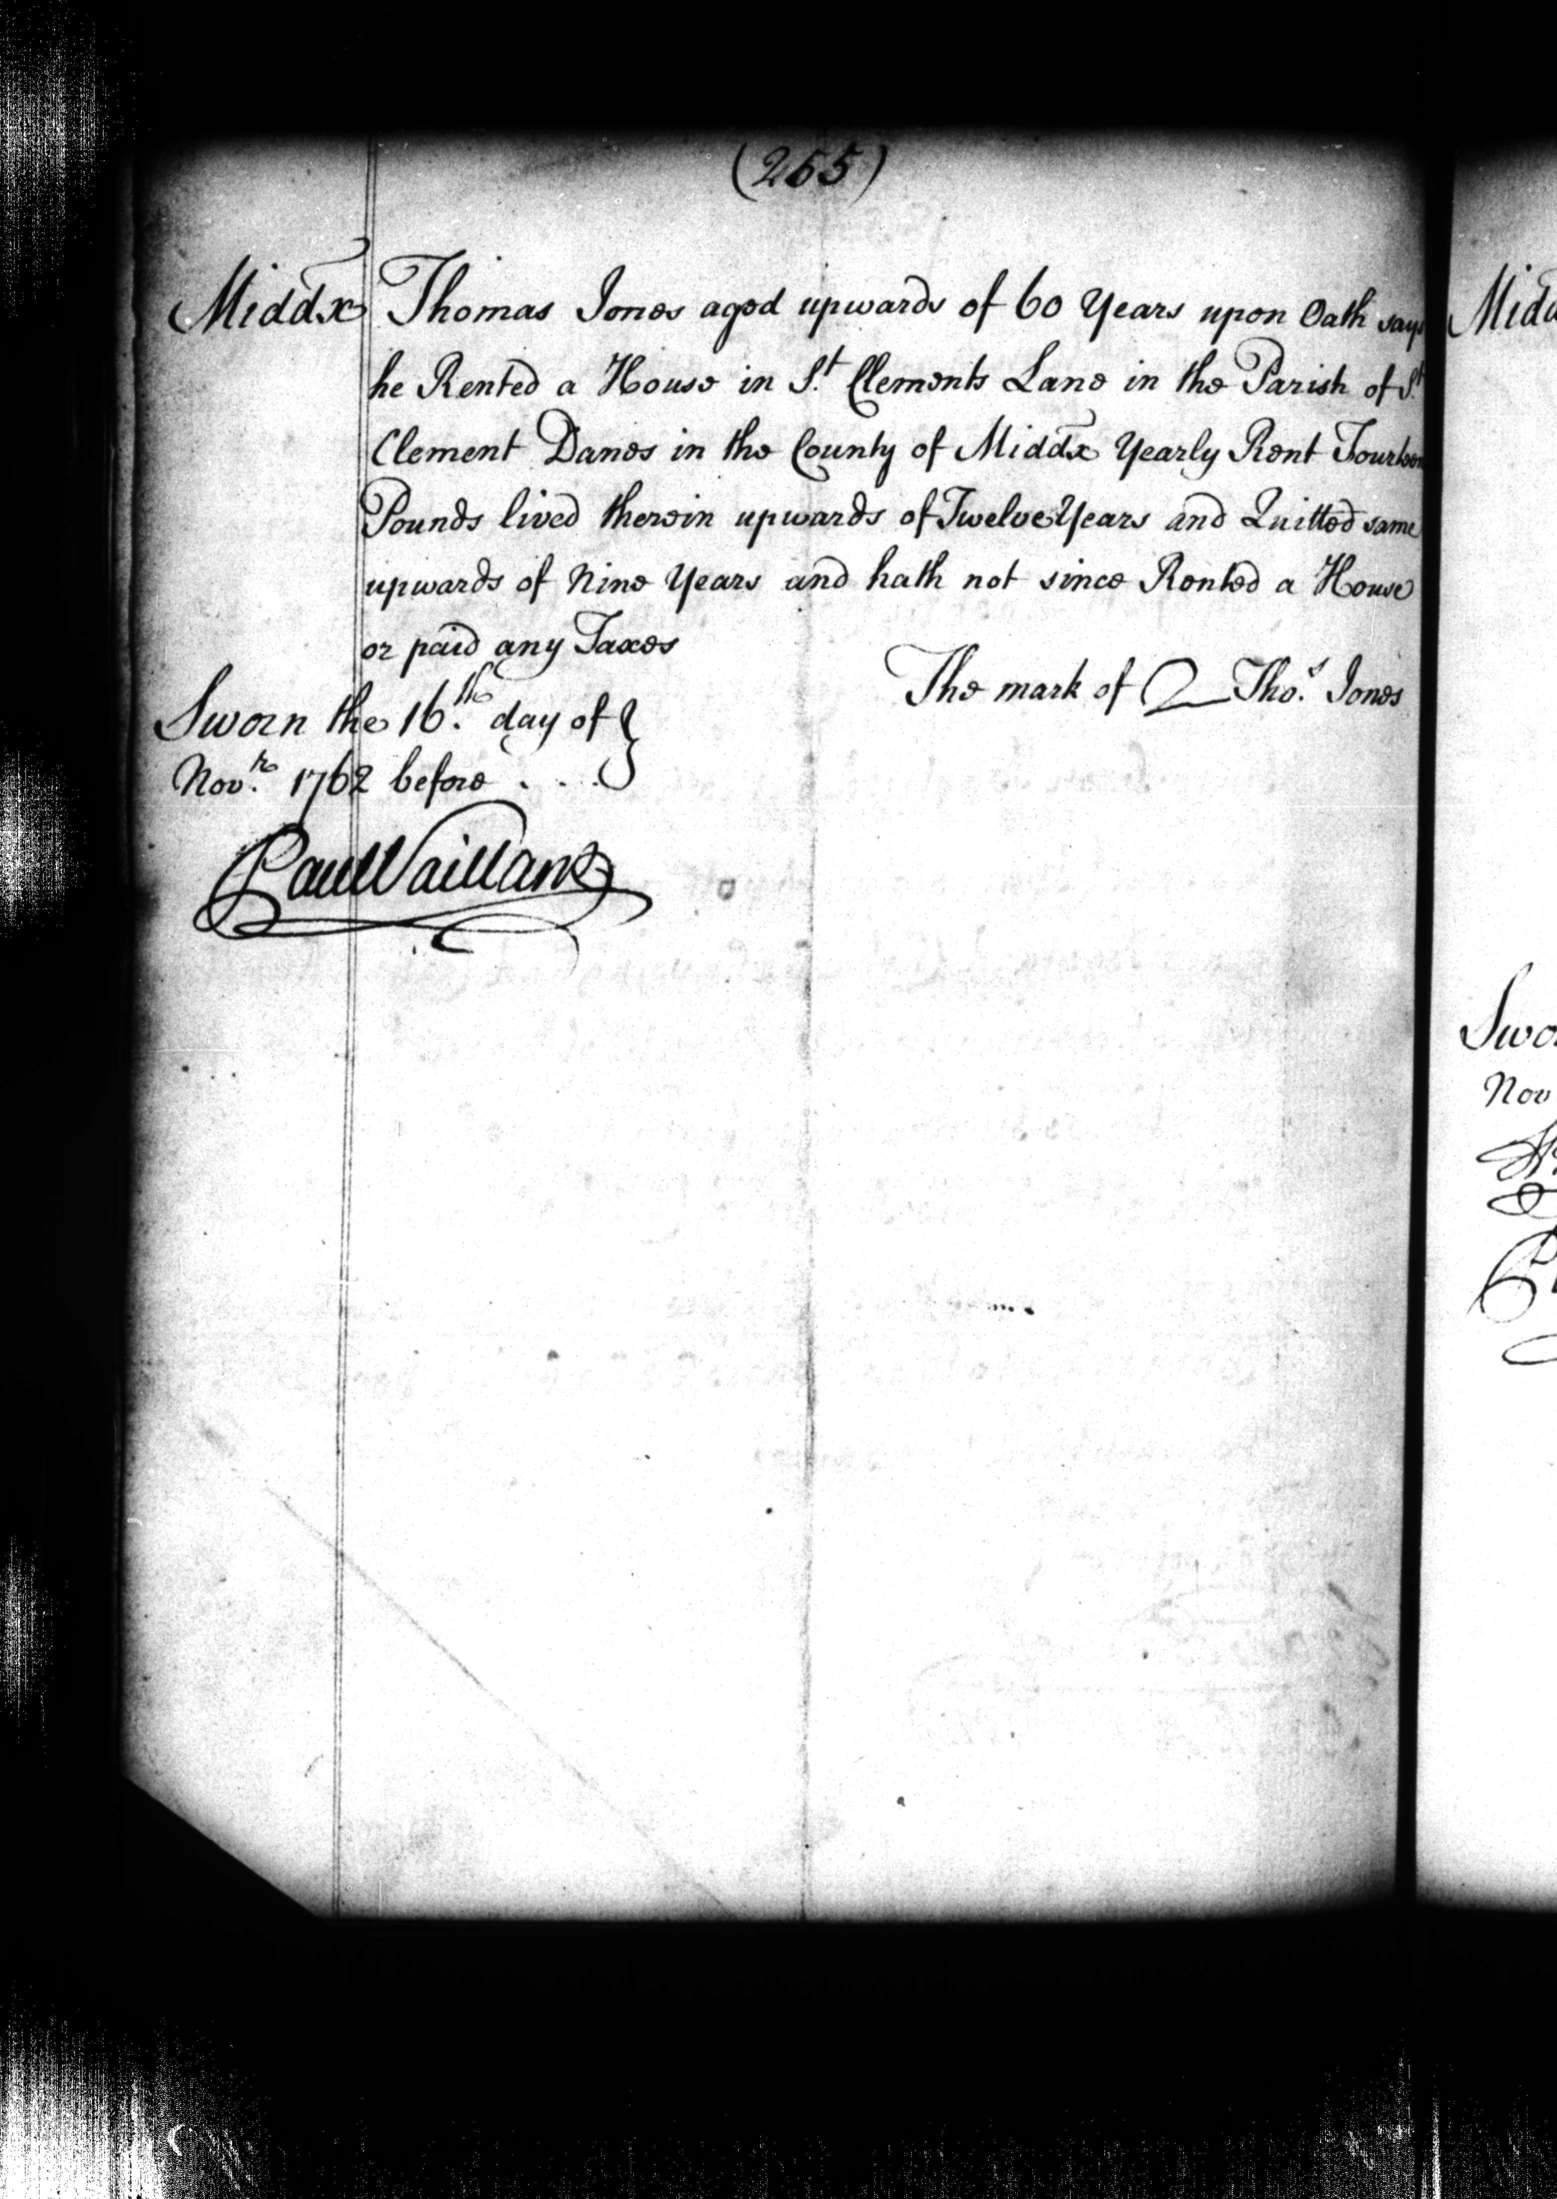 (255)
Middx Thomas Jones aged upwards of 60 Years upon Oath says
he Rented a House in St. Clements Lane in the Parish of St.
Clement Danes in the County of Middx Yearly Rent Fourteen
Pounds lived therein upwards of Twelve Years and Quitted same
upwards of Nine Years and hath not since Rented a House
or paid any Taxes
The mark of Thos. Jones
Sworn the 16.th day of }
Nov.r 1762 before . . .
Paul Vaillant
Midd
Swor
Nov